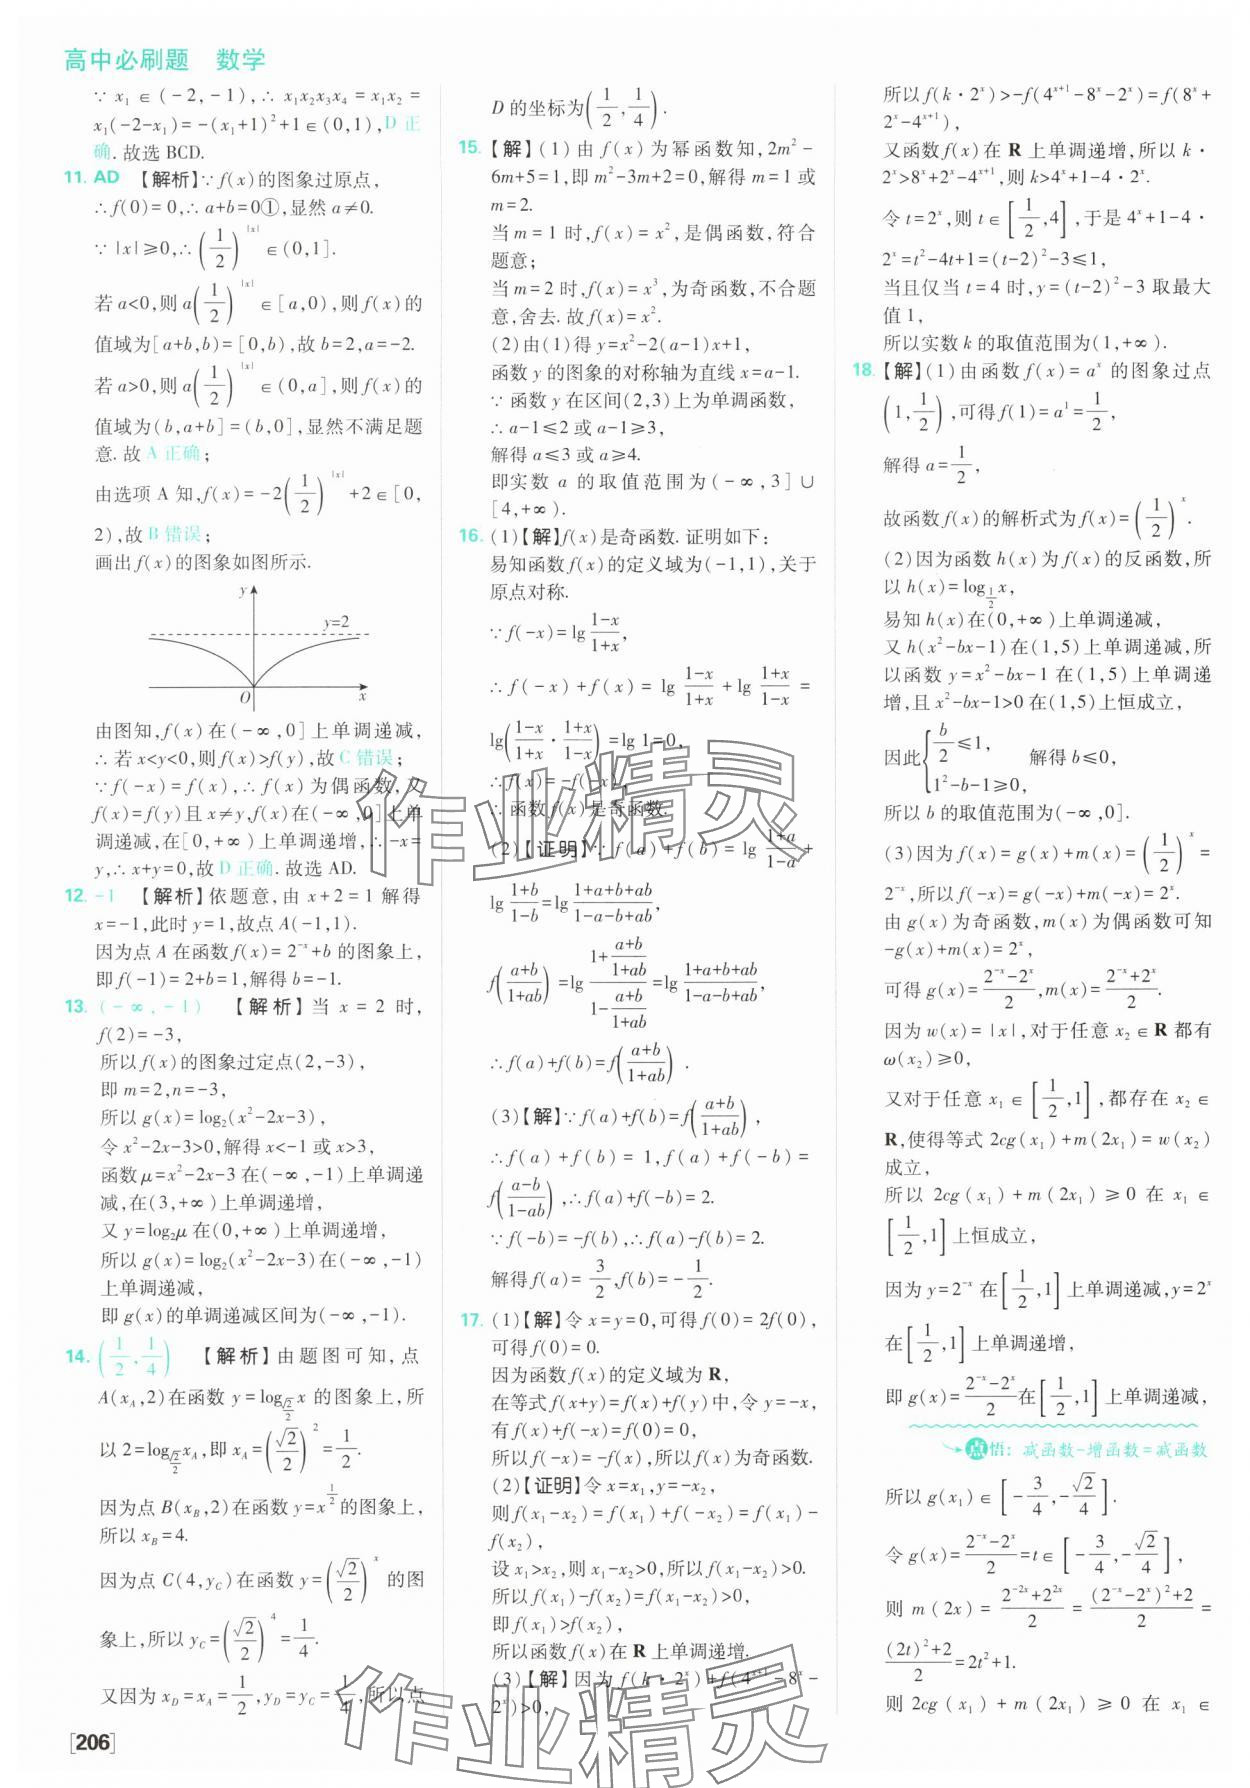 高中必刷题 数学
∵ x₁∈(-2,-1),∴ x₁x₂x₃x₄=x₁x₂=
x₁(-2-x₁)=-(x₁+1)²+1∈(0,1),D 正
确.故选 BCD.
11. AD 【解析】∵f(x)的图象过原点,
∴f(0)=0,∴a+b=0①,显然 a≠0.
∵|x|≥0,∴(1/2)^|x|∈(0,1].
若 a<0,则 a(1/2)^|x|∈[a,0),则 f(x)的
值域为[a+b,b)=[0,b),故 b=2,a=-2.
若 a>0,则 a(1/2)^|x|∈(0,a],则 f(x)的
值域为(b,a+b]=(b,0],显然不满足题
意.故 A 正确;
由选项 A 知,f(x)=-2(1/2)^|x|+2∈[0,
2),故 B 错误;
画出 f(x)的图象如图所示.
y
y=2
O
x
由图知,f(x)在(-∞,0]上单调递减,
∴若 x<y<0,则 f(x)>f(y),故 C 错误;
∵f(-x)=f(x),∴f(x)为偶函数,又
f(x)=f(y)且 x≠y,f(x)在(-∞,0]上单
调递减,在[0,+∞)上单调递增,∴-x=
y,∴x+y=0,故 D 正确.故选 AD.
12. -1 【解析】依题意,由 x+2=1 解得
x=-1,此时 y=1,故点 A(-1,1).
因为点 A 在函数 f(x)=2^(-x)+b 的图象上,
即 f(-1)=2+b=1,解得 b=-1.
13. (-∞,-1) 【解析】当 x=2 时,
f(2)=-3,
所以 f(x)的图象过定点(2,-3),
即 m=2,n=-3,
所以 g(x)=log₂(x²-2x-3),
令 x²-2x-3>0,解得 x<-1 或 x>3,
函数 μ=x²-2x-3 在(-∞,-1)上单调递
减,在(3,+∞)上单调递增,
又 y=log₂μ 在(0,+∞)上单调递增,
所以 g(x)=log₂(x²-2x-3)在(-∞,-1)
上单调递减,
即 g(x)的单调递减区间为(-∞,-1).
14. (1/2,1/4) 【解析】由题图可知,点
A(x_A,2)在函数 y=log_(√2/2) x 的图象上,所
以 2=log_(√2/2) x_A,即 x_A=(√2/2)²=1/2.
因为点 B(x_B,2)在函数 y=x^(1/2)的图象上,
所以 x_B=4.
因为点 C(4,y_C)在函数 y=(√2/2)^x 的图
象上,所以 y_C=(√2/2)⁴=1/4.
又因为 x_D=x_A=1/2,y_D=y_C=1/4,所以点
[206]
D 的坐标为(1/2,1/4).
15. 【解】(1)由 f(x)为幂函数知,2m²-
6m+5=1,即 m²-3m+2=0,解得 m=1 或
m=2.
当 m=1 时,f(x)=x²,是偶函数,符合
题意;
当 m=2 时,f(x)=x³,为奇函数,不合题
意,舍去.故 f(x)=x².
(2)由(1)得 y=x²-2(a-1)x+1,
函数 y 的图象的对称轴为直线 x=a-1.
∵函数 y 在区间(2,3)上为单调函数,
∴a-1≤2 或 a-1≥3,
解得 a≤3 或 a≥4.
即实数 a 的取值范围为(-∞,3]∪
[4,+∞).
16. (1)【解】f(x)是奇函数.证明如下:
易知函数 f(x)的定义域为(-1,1),关于
原点对称.
∵f(-x)=lg (1-x)/(1+x),
∴f(-x)+f(x)=lg (1-x)/(1+x)+lg (1+x)/(1-x)=
lg((1-x)/(1+x)·(1+x)/(1-x))=lg 1=0,
∴f(x)=-f(-x),
∴函数 f(x)是奇函数.
(2)【证明】∵f(a)+f(b)=lg (1+a)/(1-a)+
lg (1+b)/(1-b)=lg (1+a+b+ab)/(1-a-b+ab),
f((a+b)/(1+ab))=lg (1+(a+b)/(1+ab))/(1-(a+b)/(1+ab))=lg (1+a+b+ab)/(1-a-b+ab),
∴f(a)+f(b)=f((a+b)/(1+ab)).
(3)【解】∵f(a)+f(b)=f((a+b)/(1+ab)),
∴f(a)+f(b)=1,f(a)+f(-b)=
f((a-b)/(1-ab)),∴f(a)+f(-b)=2.
∵f(-b)=-f(b),∴f(a)-f(b)=2.
解得 f(a)=3/2,f(b)=-1/2.
17. (1)【解】令 x=y=0,可得 f(0)=2f(0),
可得 f(0)=0.
因为函数 f(x)的定义域为 R,
在等式 f(x+y)=f(x)+f(y)中,令 y=-x,
有 f(x)+f(-x)=f(0)=0,
所以 f(-x)=-f(x),所以 f(x)为奇函数.
(2)【证明】令 x=x₁,y=-x₂,
则 f(x₁-x₂)=f(x₁)+f(-x₂)=f(x₁)-
f(x₂),
设 x₁>x₂,则 x₁-x₂>0,所以 f(x₁-x₂)>0.
所以 f(x₁)-f(x₂)=f(x₁-x₂)>0,
即 f(x₁)>f(x₂),
所以函数 f(x)在 R 上单调递增.
(3)【解】因为 f(k·2^x)+f(4^(x+1)-8^x-
2^x)>0,
所以 f(k·2^x)>-f(4^(x+1)-8^x-2^x)=f(8^x+
2^x-4^(x+1)),
又函数 f(x)在 R 上单调递增,所以 k·
2^x>8^x+2^x-4^(x+1),则 k>4^x+1-4·2^x.
令 t=2^x,则 t∈[1/2,4],于是 4^x+1-4·
2^x=t²-4t+1=(t-2)²-3≤1,
当且仅当 t=4 时,y=(t-2)²-3 取最大
值 1,
所以实数 k 的取值范围为(1,+∞).
18. 【解】(1)由函数 f(x)=a^x 的图象过点
(1,1/2),可得 f(1)=a¹=1/2,
解得 a=1/2,
故函数 f(x)的解析式为 f(x)=(1/2)^x.
(2)因为函数 h(x)为 f(x)的反函数,所
以 h(x)=log_(1/2) x,
易知 h(x)在(0,+∞)上单调递减,
又 h(x²-bx-1)在(1,5)上单调递减,所
以函数 y=x²-bx-1 在(1,5)上单调递
增,且 x²-bx-1>0 在(1,5)上恒成立,
因此{b/2≤1, 1²-b-1≥0, 解得 b≤0,
所以 b 的取值范围为(-∞,0].
(3)因为 f(x)=g(x)+m(x)=(1/2)^x=
2^(-x),所以 f(-x)=g(-x)+m(-x)=2^x.
由 g(x)为奇函数,m(x)为偶函数可知
-g(x)+m(x)=2^x,
可得 g(x)=(2^(-x)-2^x)/2,m(x)=(2^(-x)+2^x)/2.
因为 w(x)=|x|,对于任意 x₂∈R 都有
ω(x₂)≥0,
又对于任意 x₁∈[1/2,1],都存在 x₂∈
R,使得等式 2cg(x₁)+m(2x₁)=w(x₂)
成立,
所以 2cg(x₁)+m(2x₁)≥0 在 x₁∈
[1/2,1]上恒成立,
因为 y=2^(-x)在[1/2,1]上单调递减,y=2^x
在[1/2,1]上单调递增,
即 g(x)=(2^(-x)-2^x)/2 在[1/2,1]上单调递减,
点悟:减函数-增函数=减函数
所以 g(x₁)∈[-3/4,-√2/4].
令 g(x)=(2^(-x)-2^x)/2=t∈[-3/4,-√2/4],
则 m(2x)=(2^(-2x)+2^(2x))/2=((2^(-x)-2^x)²+2)/2=
((2t)²+2)/2=2t²+1.
则 2cg(x₁)+m(2x₁)≥0 在 x₁∈
作业精灵
作业精灵